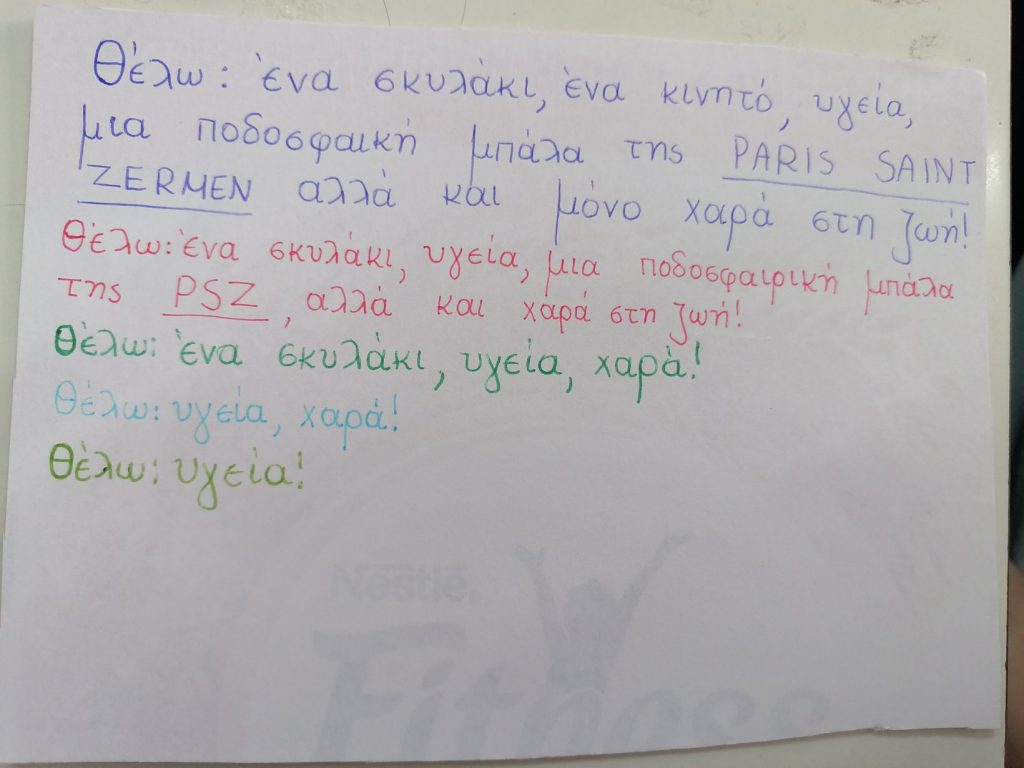 Θέλω: ένα σκυλάκι, ένα κινητό, υγεία,
μια ποδοσφαική μπάλα της PARIS SAINT
ZERMEN αλλά και μόνο χαρά στη ζωή!
Θέλω: ένα σκυλάκι, υγεία, μια ποδοσφαιρική μπάλα
της PSZ, αλλά και χαρά στη ζωή!
Θέλω: ένα σκυλάκι, υγεία, χαρά!
Θέλω: υγεία, χαρά!
Θέλω: υγεία!
Nestlé.
Fitness